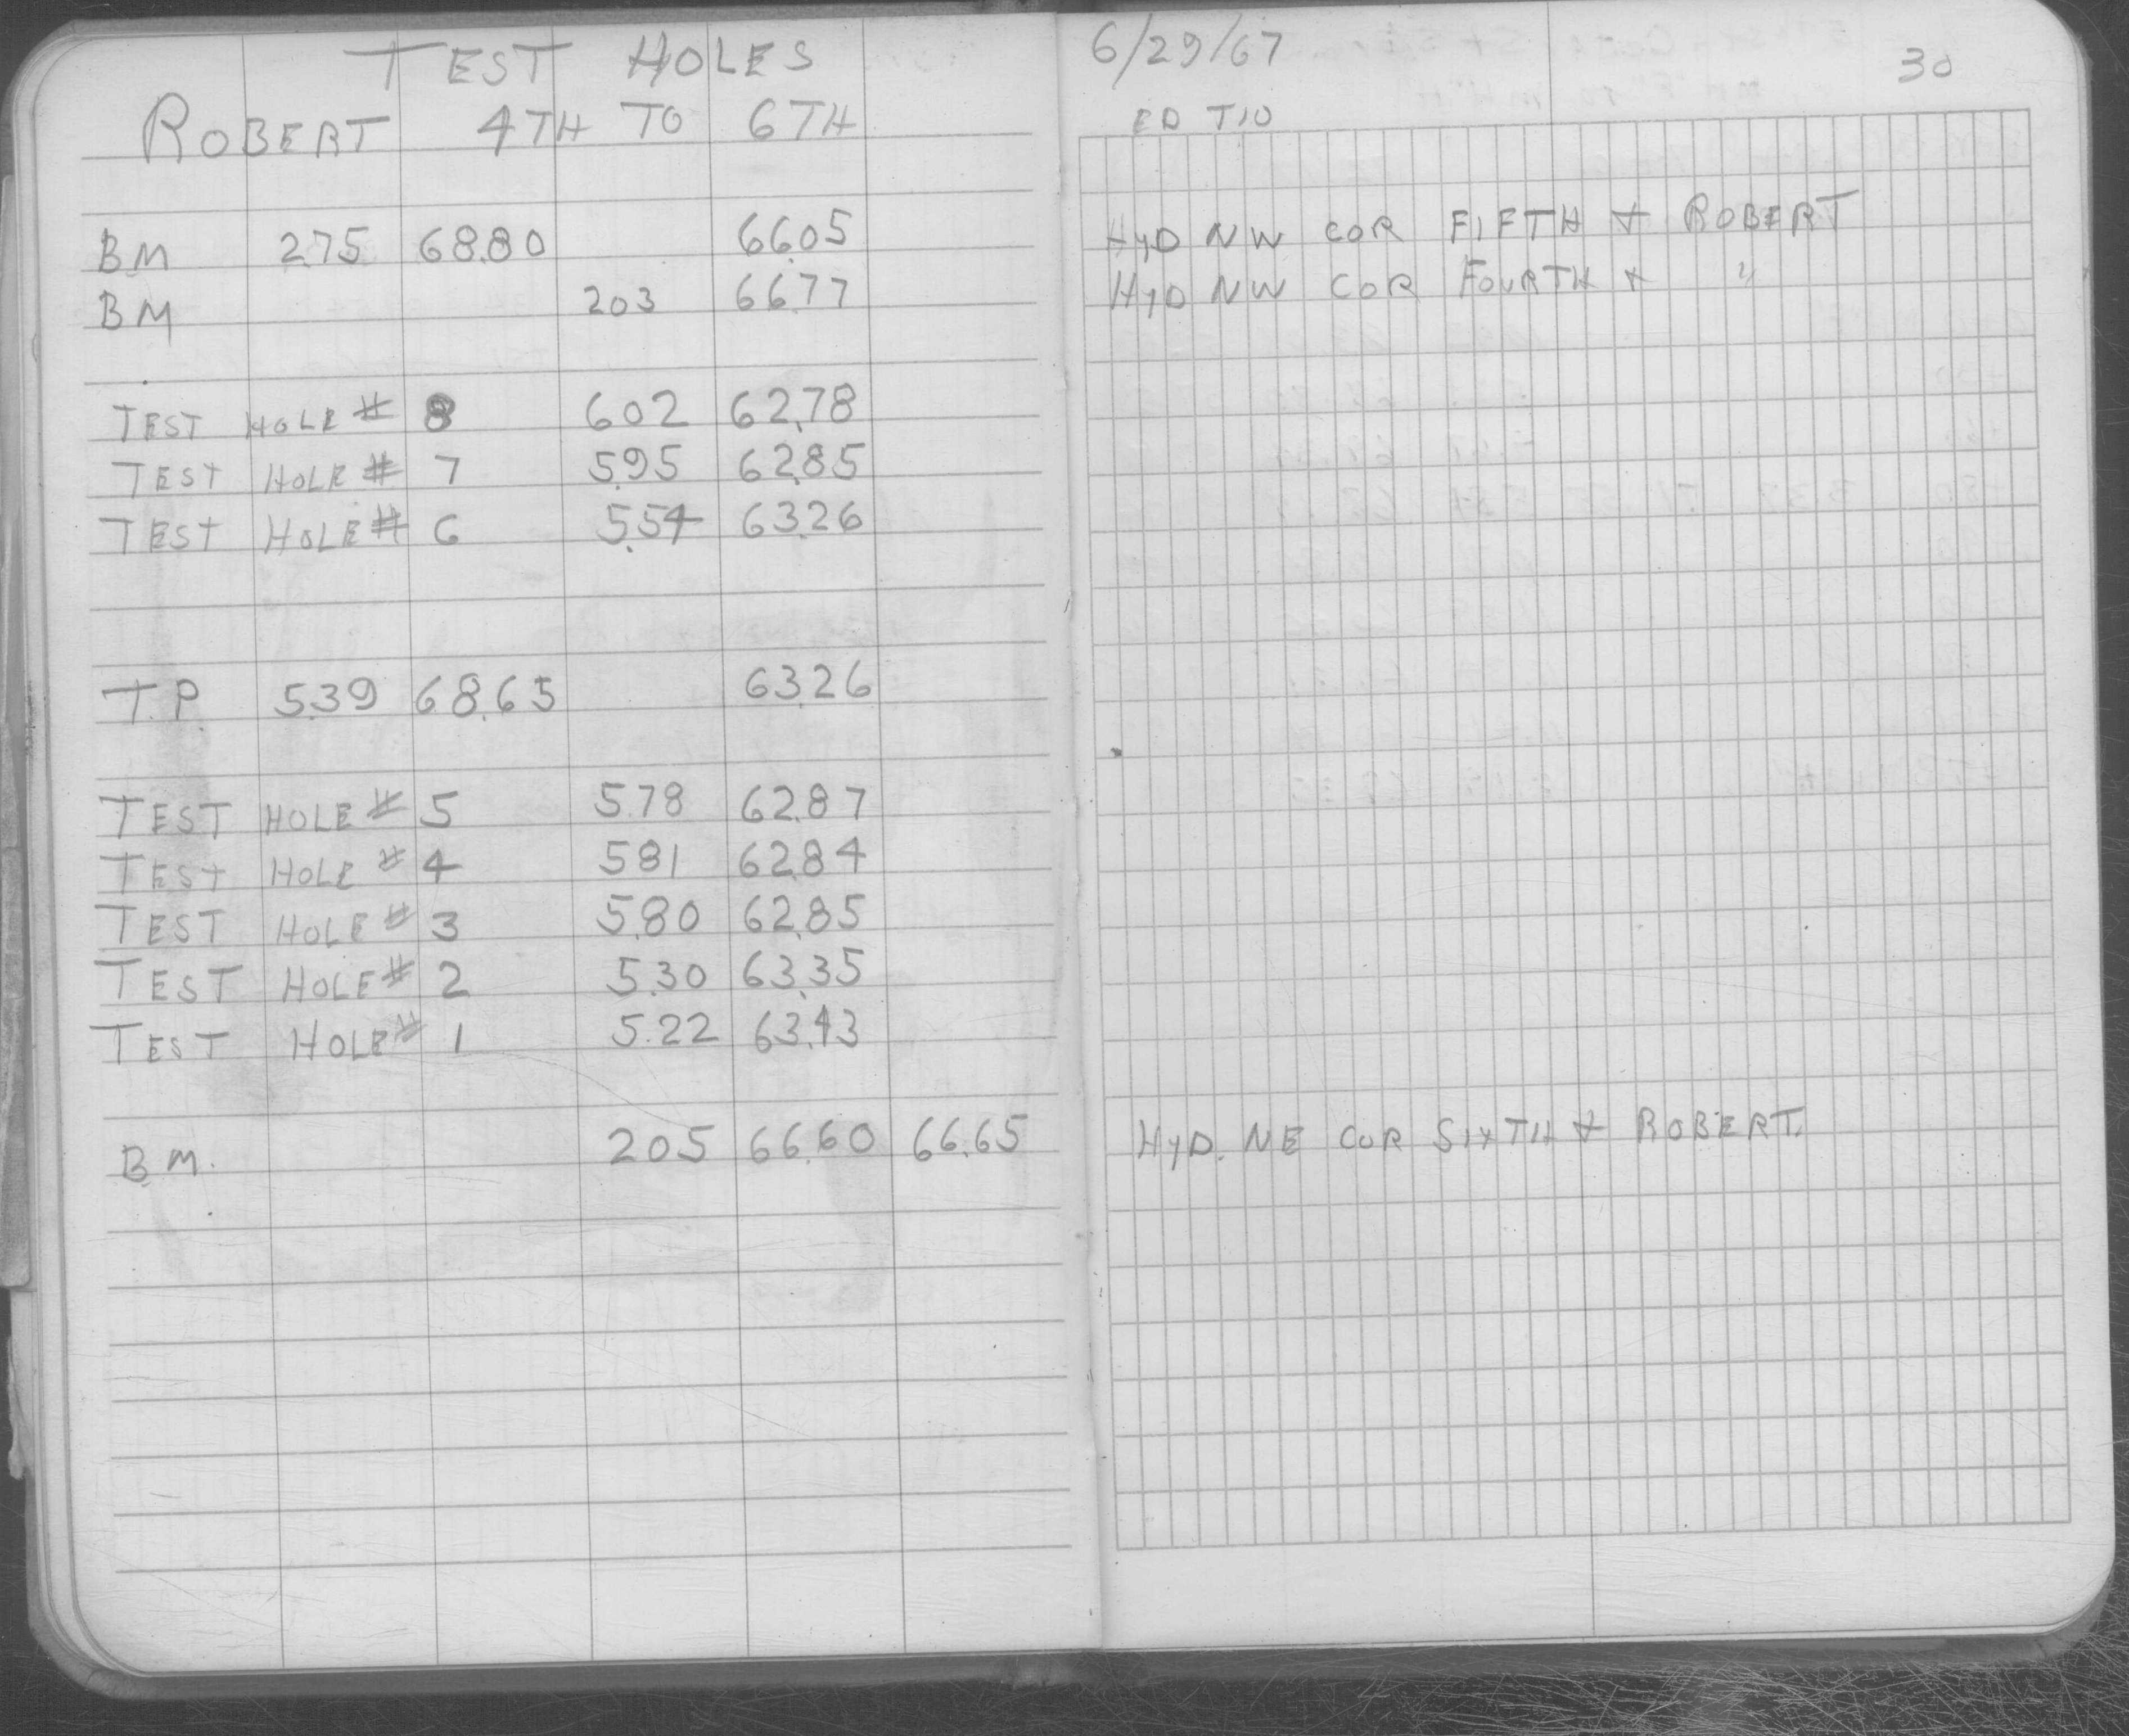 TEST HOLES
ROBERT 4TH TO 6TH
BM 2.75 68.80 66.05
BM 203 66.77
TEST HOLE # 8 602 62.78
TEST HOLE # 7 5.95 62.85
TEST HOLE # 6 5.54 63.26
T.P. 5.39 68.65 63.26
TEST HOLE # 5 5.78 62.87
TEST HOLE # 4 581 62.84
TEST HOLE # 3 5.80 62.85
TEST HOLE # 2 5.30 63.35
TEST HOLE # 1 5.22 63.43
B.M. 205 66.60 66.65
6/29/67
30
ED T10
HYD NW COR FIFTH & ROBERT
HYD NW COR FOURTH & "
HYD. NE COR SIXTH & ROBERT.